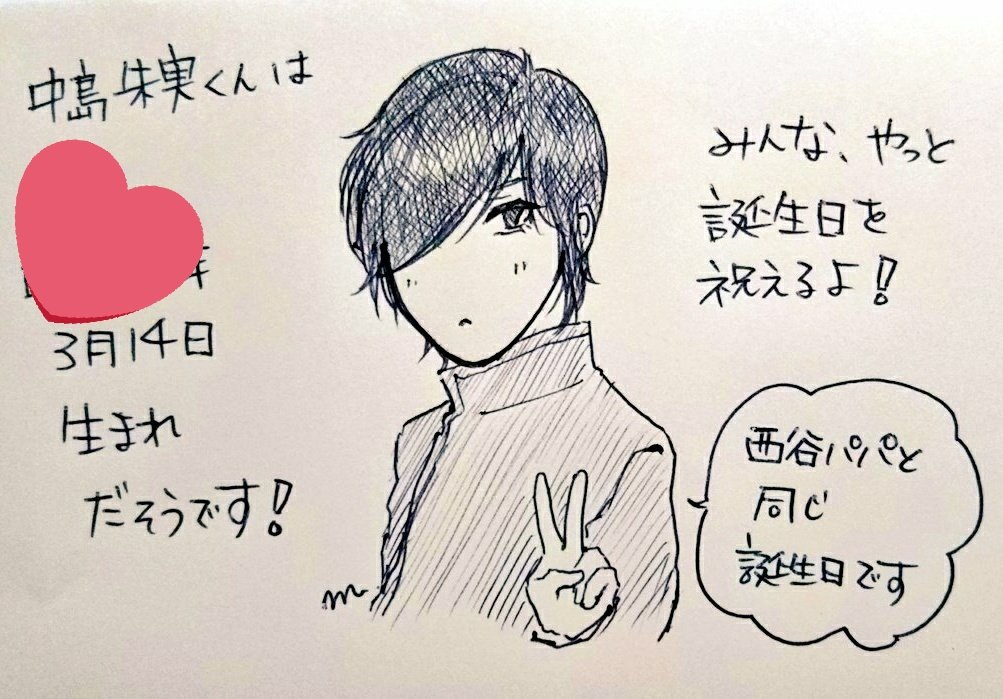 中島朱実くんは
年
3月14日
生まれ
だそうです!
みんな、やっと
誕生日を
祝えるよ!
西谷パパと
同じ
誕生日です
m